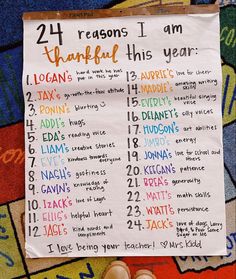 24 reasons I am
thankful this year:
1. LOGAN's hard work he has put in this year
2. JAX's go-with-the-flow attitude
3. RONIN's blurting
4. ADDI's hugs
5. EDA's reading voice
6. LIAM's creative stories
7. EVE's kindness towards everyone
8. NASH's goofiness
9. GAVIN's knowledge of racing
10. IZACK's love of Legos
11. ELLIS's helpful heart
12. JAGE's kind words and compliments
13. AUBRIE's love for cheer
14. MADDIE's amazing writing skills
15. EVERLY's beautiful singing voice
16. DELANEY's silly voices
17. HUDSON's art abilities
18. JIMBO's energy
19. JONNA's love for school and others
20. KEEGAN's patience
21. BREA's generosity
22. MATT's math skills
23. WYATT's persistence
24. JACK's love of dogs,
I love being your teacher! Mrs. Kidd